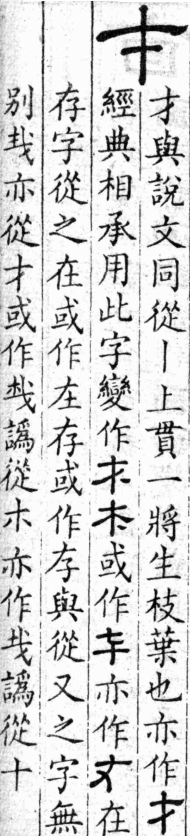 才與說文同從丨上貫一將生枝葉也亦作才
經典相承用此字變作才木或作㐄亦作丈在
存字從之在或作左存或作存與從又之字無
别𢦏亦從才或作𢦏譌從木亦作𢦏譌從十